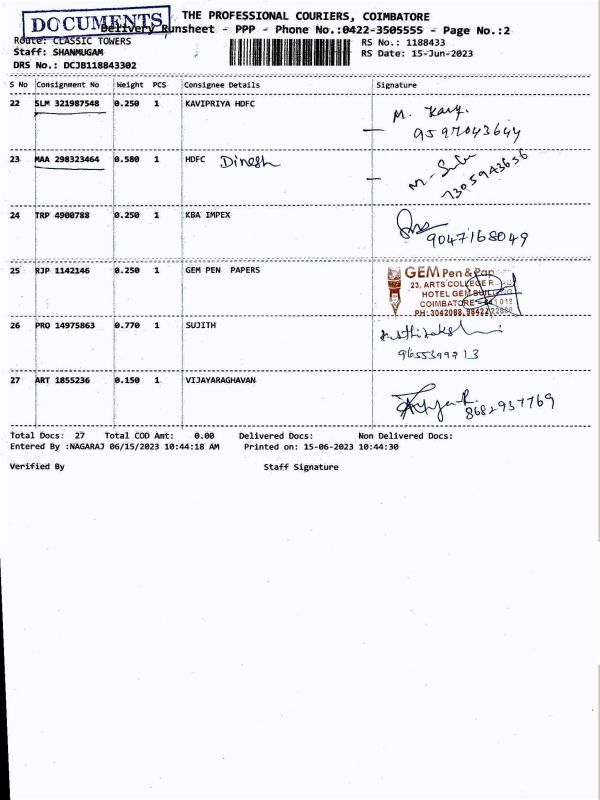 DOCUMENTS
THE PROFESSIONAL COURIERS, COIMBATORE
Delivery Runsheet - PPP - Phone No.:0422-3505555 - Page No.:2
Route: CLASSIC TOWERS RS No.: 1188433
Staff: SHANMUGAM RS Date: 15-Jun-2023
DRS No.: DCJB118843302
S No Consignment No Weight PCS Consignee Details Signature
22 SLM 321987548 0.250 1 KAVIPRIYA HDFC M.
9597043644
23 MAA 298323464 0.580 1 HDFC Dinesh
7305943656
24 TRP 4900788 0.250 1 KBA IMPEX
9047168049
25 RJP 1142146 0.250 1 GEM PEN PAPERS GEM Pen &
23, ARTS COLLEGE
HOTEL GEM
COIMBATORE
PH: 3042088,
26 PRO 14975863 0.770 1 SUJITH
27 ART 1855236 0.150 1 VIJAYARAGHAVAN
8682937769
Total Docs: 27 Total COD Amt: 0.00 Delivered Docs: Non Delivered Docs:
Entered By :NAGARAJ 06/15/2023 10:44:18 AM Printed on: 15-06-2023 10:44:30
Verified By Staff Signature